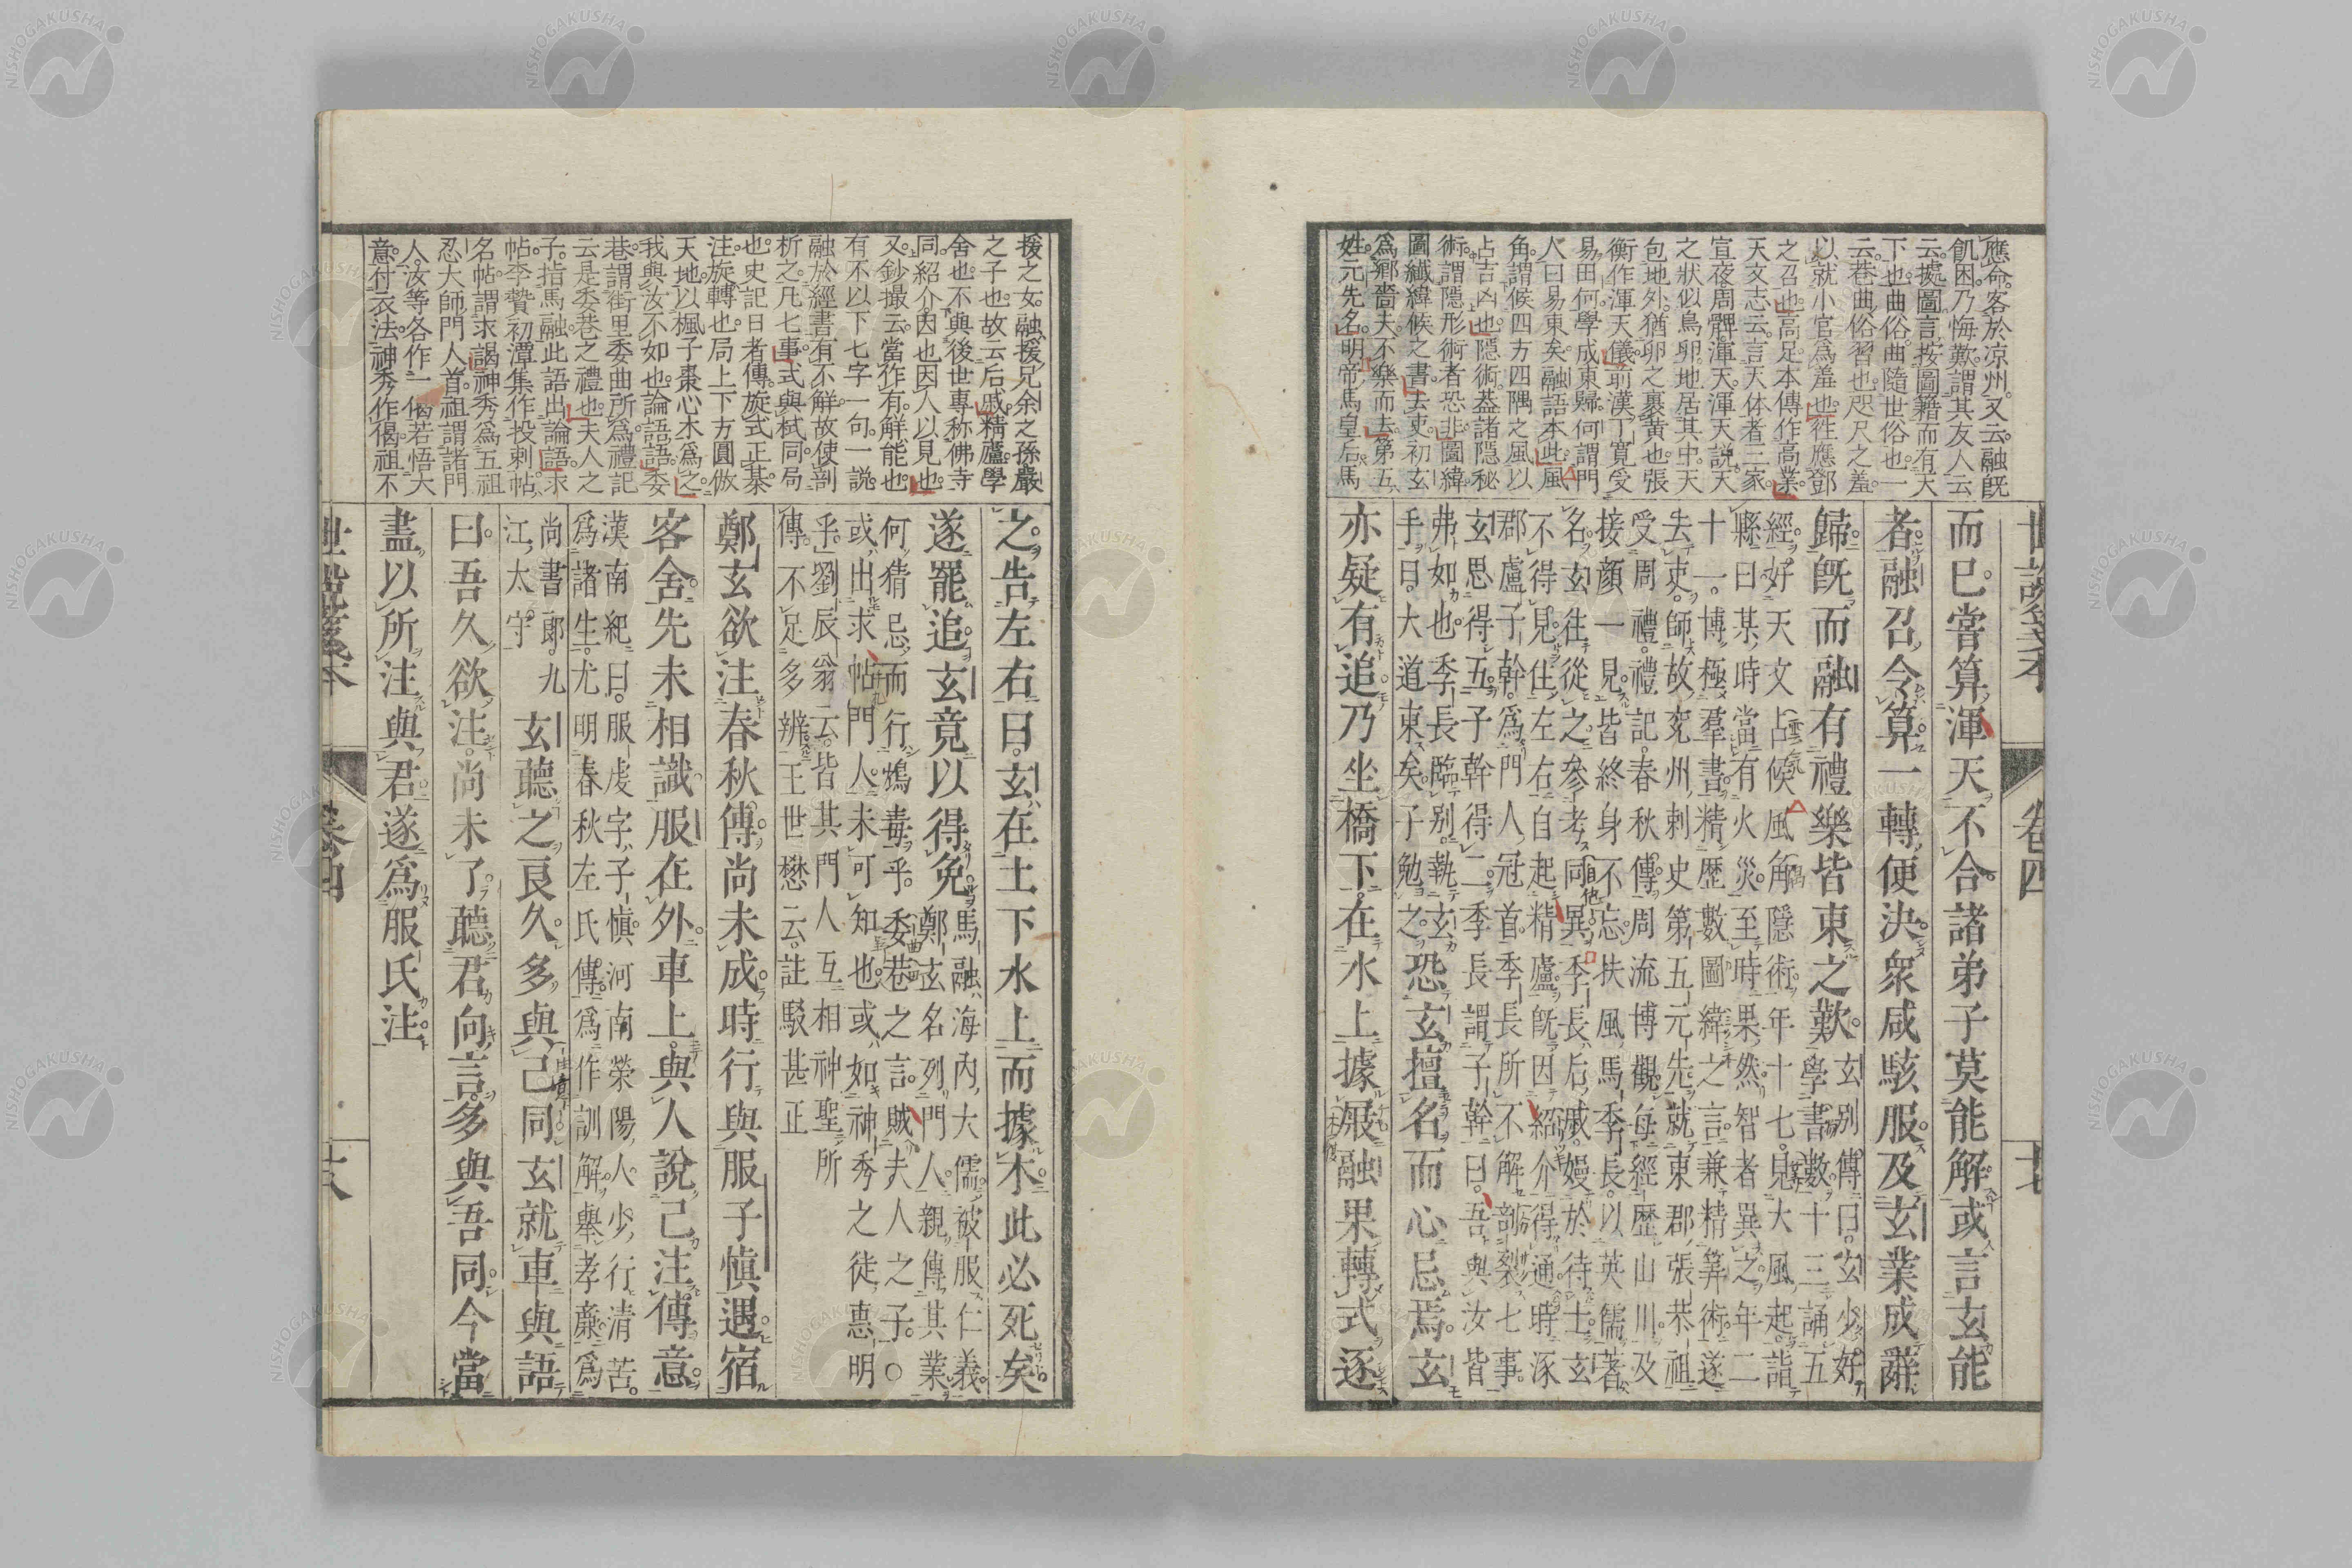 應命客於凉州又云融既
飢困乃悔歎謂其友人云
云處圖言按圖籍而有天
下也曲俗曲隨世俗也一
云巷曲俗習也咫尺之羞
以就小官爲羞也往應鄧
之召也高足本傳作高業
天文志云言天体者三家
宣夜周髀渾天渾天説天
之狀似鳥卵地居其中天
包地外猶卵之裹黄也張
衡作渾天儀前漢丁寬受
易田何學成東歸何謂門
人曰易東矣融語本此風
角謂候四方四隅之風以
占吉凶也隱術葢諸隱秘
術謂隱形術者恐非圖緯
圖纖緯候之書去吏初玄
爲鄉嗇夫不樂而去第五
姓元先名明帝馬皇后馬
而已甞算渾天不合諸弟子莫能解或言玄能
者融召令算一轉便決衆咸駭服及玄業成辭
歸既而融有禮樂皆東之歎
玄别傳曰玄少好
學書數十三誦五
經好天文占候風角隱術年十七見大風起詣
縣曰某時當有火災至時果然智者異之年二
十一博極羣書精歷數圖緯之言兼精筭術遂
去吏師故兖州刺史第五元先就東郡張恭祖
受周禮禮記春秋傳周流博觀每經歷山川及
接顔一見皆終身不忘扶風馬季長以英儒著
名玄往從之參考同異季長后戚嫚於待士玄
不得見住左右自起精廬既因紹介得通時涿
郡盧子幹爲門人冠首季長所不解剖裂七事
玄思得五子幹得二季長謂子幹曰吾與汝皆
弗如也季長臨別執玄
手曰大道東矣子勉之
恐玄擅名而心忌焉玄
亦疑有追乃坐橋下在水上據屐融果轉式逐
世説箋本 卷四 十七
援之女融援兄余之孫嚴
之子也故云后戚精廬學
舍也不與後世專称佛寺
同紹介因也因人以見也
又鈔撮云當作有解能也
有不以下七字一句一說
融於經書有不解故使剖
析之凡七事式與栻同局
也史記日者傳旋式正棊
注旋轉也局上下方圓倣
天地以楓子棗心木爲之
我與汝不如也論語語委
巷謂街里委曲所爲禮記
云是委巷之禮也夫人之
子指馬融此語出論語求
帖李贄初潭集作投刺帖
名帖謂求謁神秀爲五祖
忍大師門人首祖謂諸門
人汝等各作一偈若悟大
意付衣法神秀作偈祖不
之告左右曰玄在土下水上而據木此必死矣
遂罷追玄竟以得免
馬融海内大儒被服仁義
鄭玄名列門人親傳其業
何猜忌而行鴆毒乎委巷之言賊夫人之子○
或出求帖門人未可知也或如神秀之徒惠明
乎劉辰翁云皆其門人互相神聖所
傳不足多辨王世懋云註駁甚正
鄭玄欲注春秋傳尚未成時行與服子愼遇宿
客舍先未相識服在外車上與人說己注傳意
漢南紀曰服虔字子愼河南滎陽人少行清苦
爲諸生尤明春秋左氏傳爲作訓解舉孝廉爲
尚書郎九
江太守
玄聽之良久多與己同玄就車與語
曰吾久欲注尚未了聽君向言多與吾同今當
盡以所注與君遂爲服氏注
世説箋本 卷四 十八
NISHOGAKUSHA